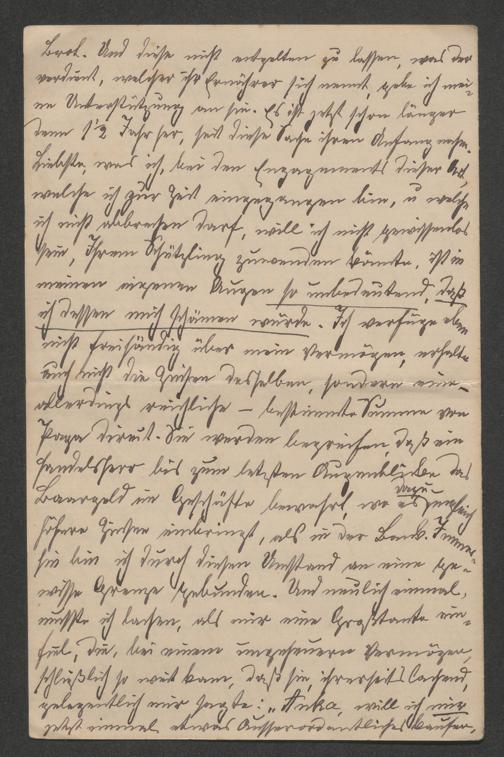 Brot. Und diese nicht entgelten zu lassen, was der
verdient, welcher ihr Ernährer sich nennt, gebe ich mei-
ne Unterstützung an sie. Es ist jetzt schon länger
denn 1½ Jahr her, seit diese Sache ihren Anfang nahm.
Liebste, was ich, bei den Engagements dieser Art,
welche ich zur Zeit eingegangen bin, u welche
ich nicht abbrechen darf, will ich nicht gewissenlos
sein, Ihrem Schützling zuwenden könnte, ist in
meinen eigenen Augen so unbedeutend, daß
ich dessen mich schämen würde. Ich verfüge eben
nicht freihändig über mein Vermögen, erhalte
auch nicht die Zinsen desselben, sondern eine –
allerdings reichliche – bestimmte Summe von
Papa direct. Sie werden begreifen, daß ein
Handelsherr bis zum letzten Augenblicke das
Baargeld im Geschäfte bewahrt, wo es dazu
höhere Zinsen einbringt, als in der Bank. Immer-
hin bin ich durch diesen Umstand an eine ge-
wisse Grenze gebunden. Und neulich einmal,
mußte ich lachen, als mir eine Großtante ein-
fiel, die, bei einem ungeheuern Vermögen,
schließlich so weit kam, daß sie, ihrerseits lachend,
gelegentlich mir sagte: „Anka, will ich mir
jetzt einmal etwas Ausserordentliches kaufen,